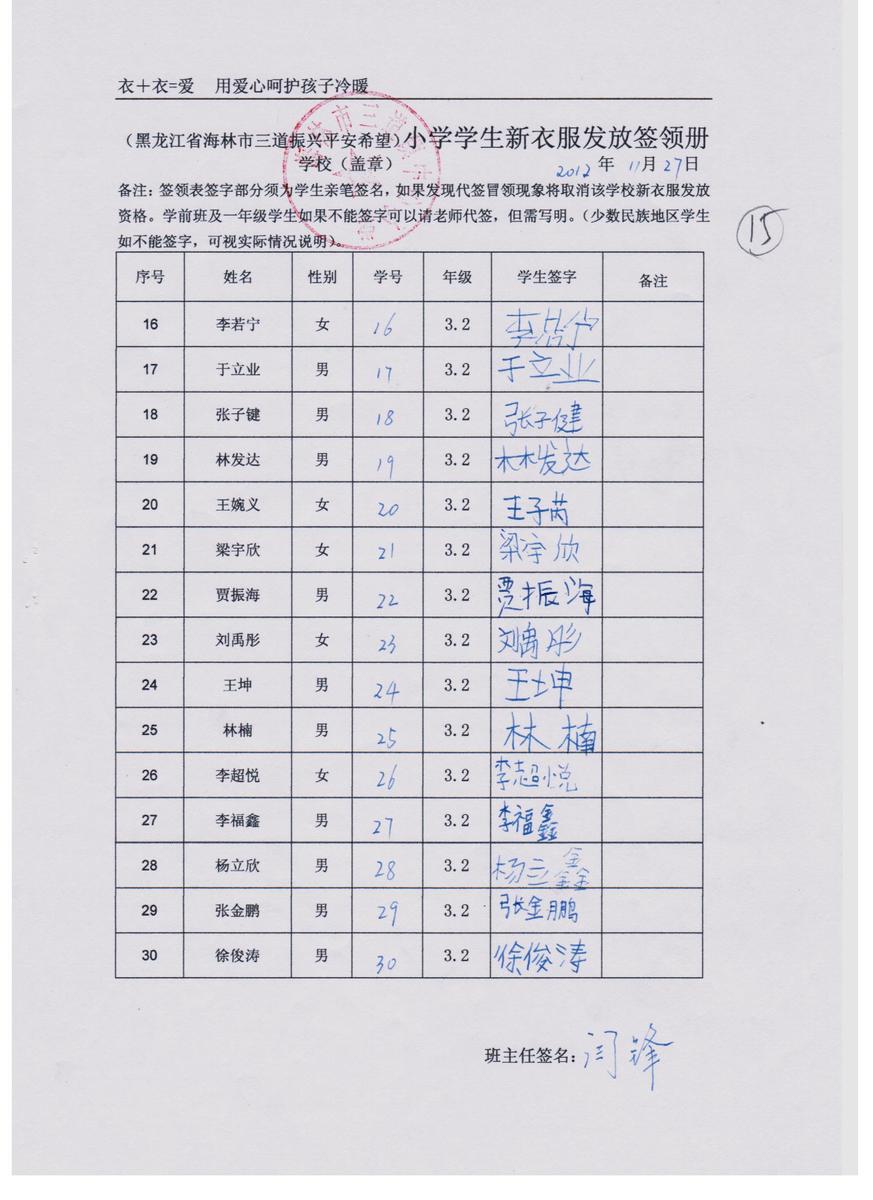 衣＋衣=爱 用爱心呵护孩子冷暖
（黑龙江省海林市三道振兴平安希望）小学学生新衣服发放签领册
学校（盖章） 2012 年 11月 27日
备注：签领表签字部分须为学生亲笔签名，如果发现代签冒领现象将取消该学校新衣服发放
资格。学前班及一年级学生如果不能签字可以请老师代签，但需写明。（少数民族地区学生
如不能签字，可视实际情况说明）。
15
序号 姓名 性别 学号 年级 学生签字 备注
16 李若宁 女 16 3.2 李若宁
17 于立业 男 17 3.2 于立业
18 张子键 男 18 3.2 张子健
19 林发达 男 19 3.2 林发达
20 王婉义 女 20 3.2 王子芮
21 梁宇欣 女 21 3.2 梁宇欣
22 贾振海 男 22 3.2 贾振海
23 刘禹彤 女 23 3.2 刘禹彤
24 王坤 男 24 3.2 王坤
25 林楠 男 25 3.2 林楠
26 李超悦 女 26 3.2 李超悦
27 李福鑫 男 27 3.2 李福鑫
28 杨立欣 男 28 3.2 杨立鑫
29 张金鹏 男 29 3.2 张金鹏
30 徐俊涛 男 30 3.2 徐俊涛
班主任签名：闫锋